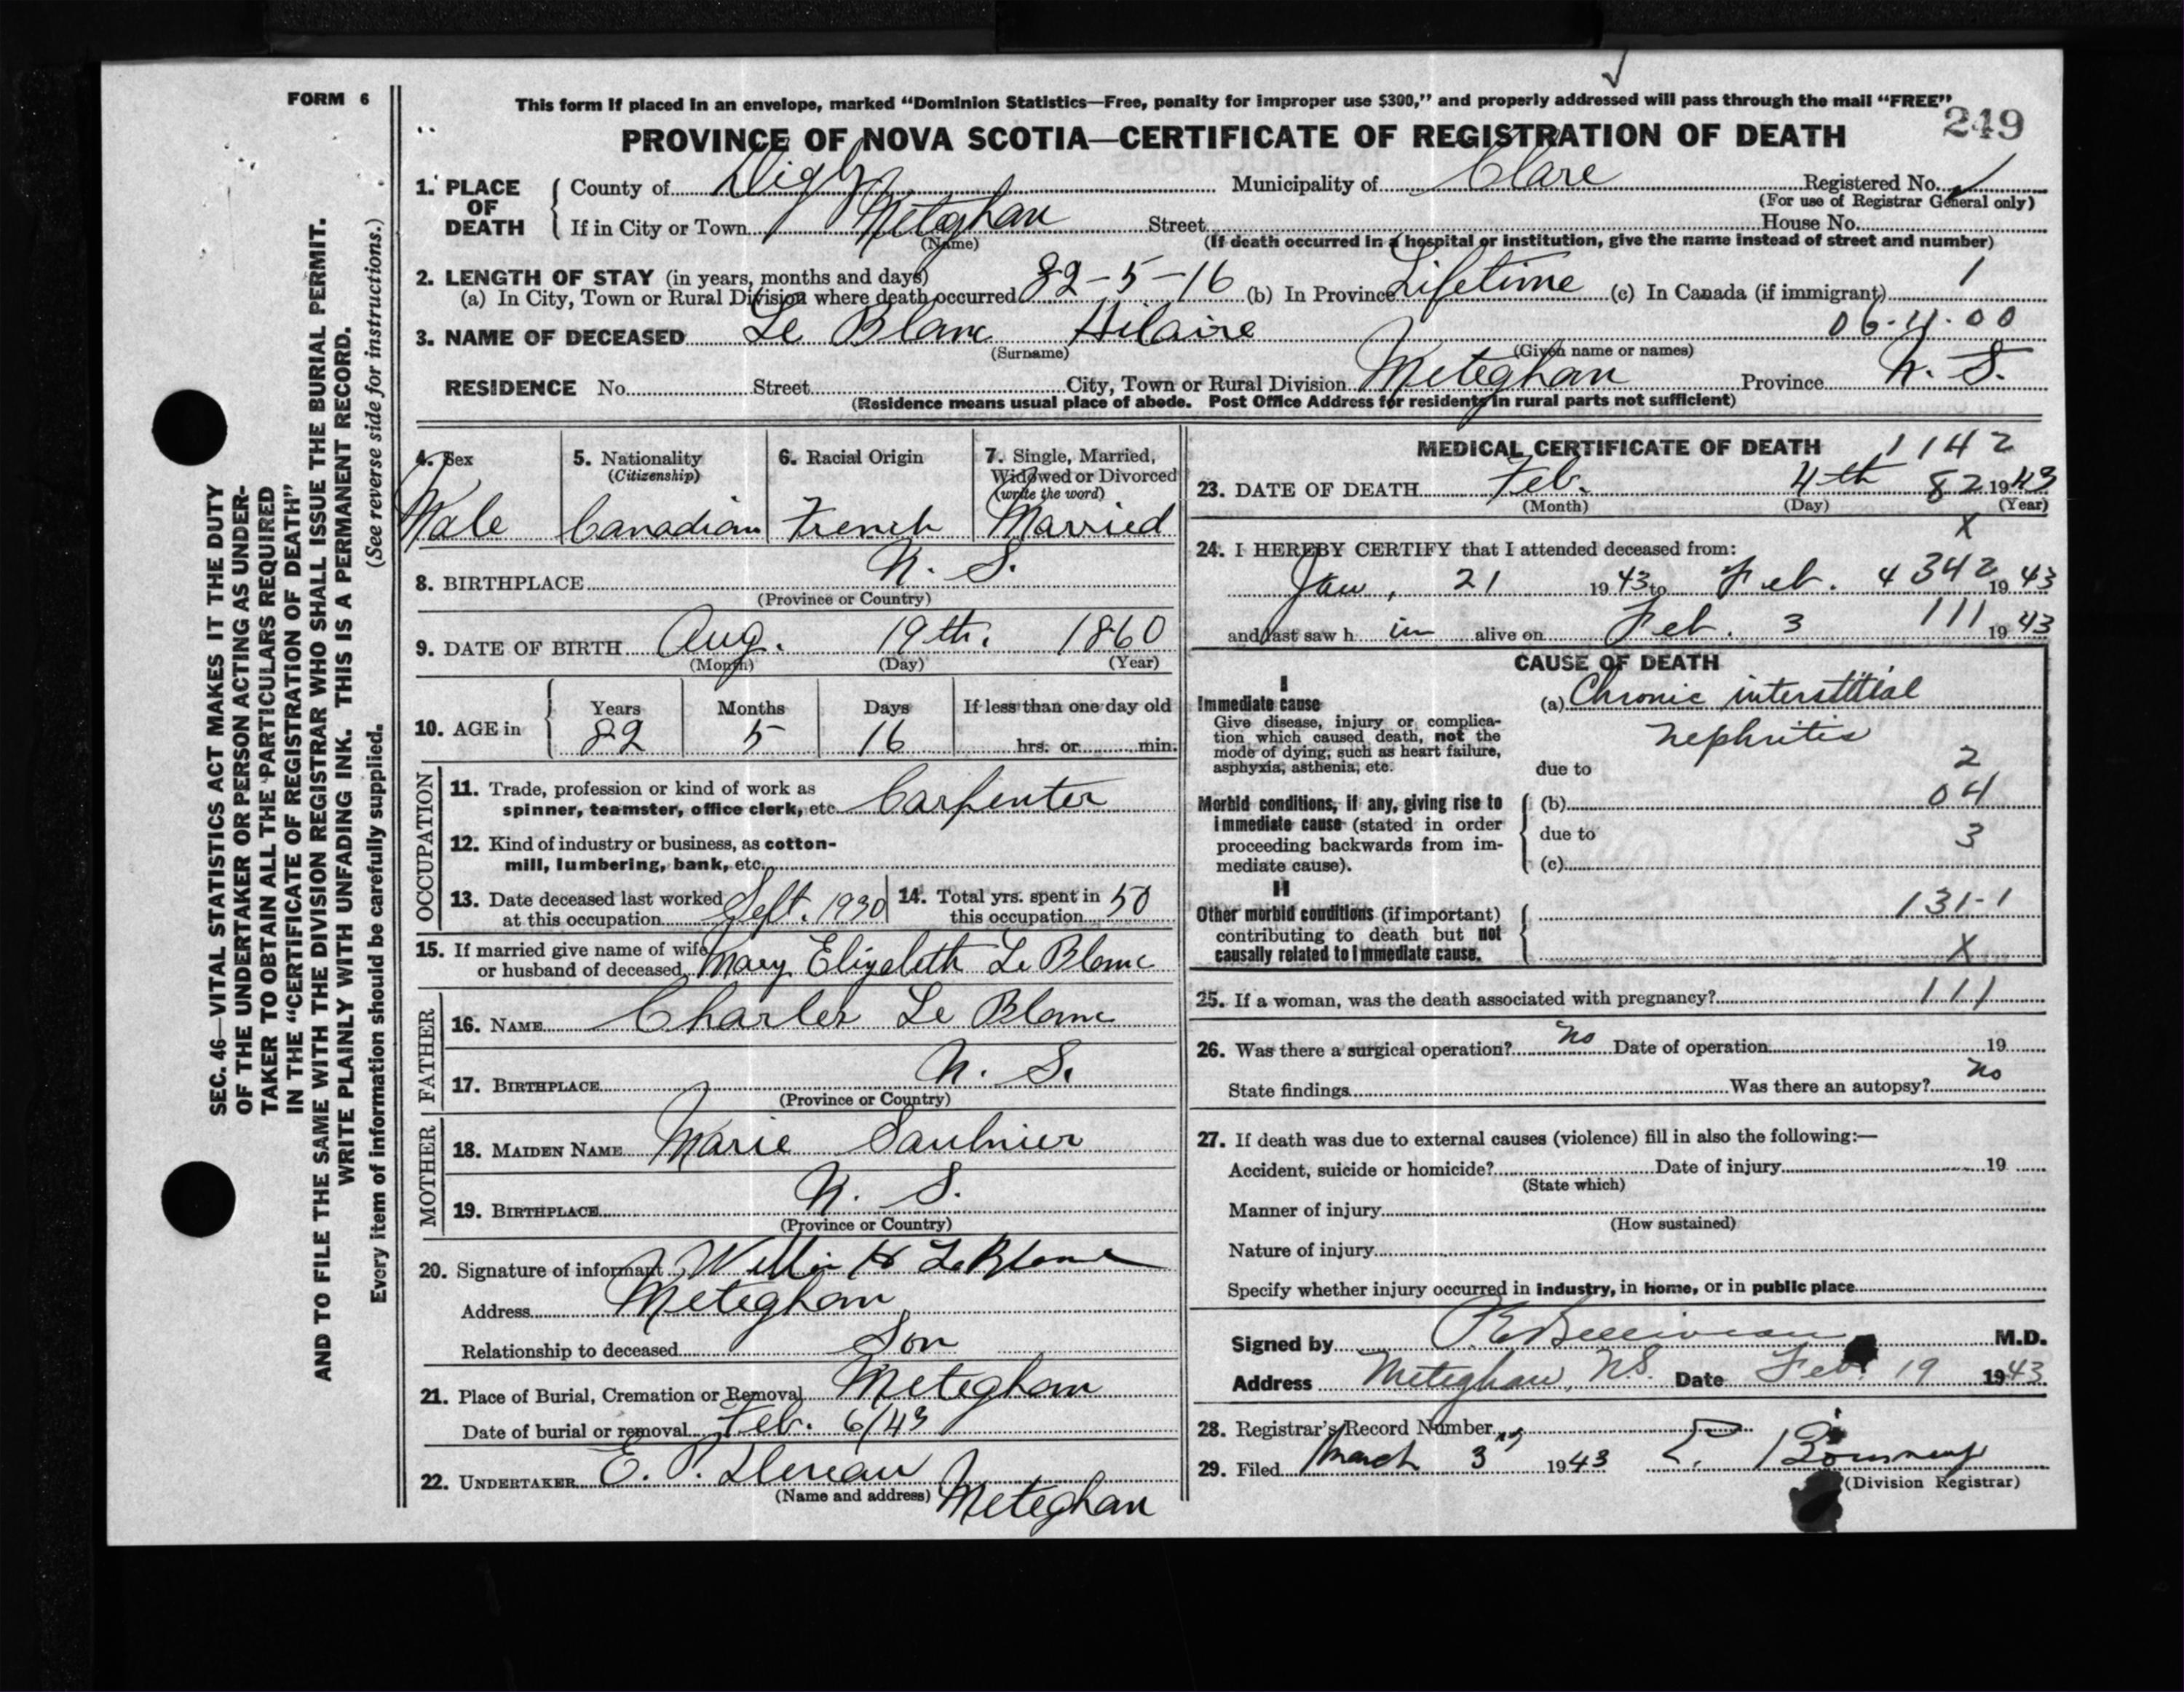 FORM 6
This form if placed in an envelope, marked "Dominion Statistics—Free, penalty for improper use $300," and properly addressed will pass through the mail "FREE"
249
PROVINCE OF NOVA SCOTIA—CERTIFICATE OF REGISTRATION OF DEATH
1. PLACE OF DEATH
County of Digby Municipality of Clare Registered No.
(For use of Registrar General only)
If in City or Town Meteghan Street House No.
(Name) (If death occurred in a hospital or institution, give the name instead of street and number)
2. LENGTH OF STAY (in years, months and days)
(a) In City, Town or Rural Division where death occurred 82-5-16 (b) In Province Lifetime (c) In Canada (if immigrant) 1
06.11.00
3. NAME OF DECEASED Le Blanc Hilaire
(Surname) (Given name or names)
RESIDENCE No. Street City, Town or Rural Division Meteghan Province N. S.
(Residence means usual place of abode. Post Office Address for residents in rural parts not sufficient)
4. Sex
Male
5. Nationality
(Citizenship)
Canadian
6. Racial Origin
French
7. Single, Married,
Widowed or Divorced
(write the word)
Married
8. BIRTHPLACE N. S.
(Province or Country)
9. DATE OF BIRTH Aug. 19th. 1860
(Month) (Day) (Year)
10. AGE in
Years Months Days If less than one day old
82 5 16 hrs. or min.
OCCUPATION
11. Trade, profession or kind of work as
spinner, teamster, office clerk, etc. Carpenter
12. Kind of industry or business, as cotton-
mill, lumbering, bank, etc.
13. Date deceased last worked
at this occupation Sept. 1930
14. Total yrs. spent in
this occupation 50
15. If married give name of wife
or husband of deceased Mary Elizabeth Le Blanc
FATHER
16. NAME Charles Le Blanc
17. BIRTHPLACE N. S.
(Province or Country)
MOTHER
18. MAIDEN NAME Marie Saulnier
19. BIRTHPLACE N. S.
(Province or Country)
20. Signature of informant H LeBlanc
Address Meteghan
Relationship to deceased Son
21. Place of Burial, Cremation or Removal Meteghan
Date of burial or removal Feb. 6/43
22. UNDERTAKER E. P.
(Name and address) Meteghan
MEDICAL CERTIFICATE OF DEATH 1142
23. DATE OF DEATH Feb. 4th 82 1943
(Month) (Day) (Year)
X
24. I HEREBY CERTIFY that I attended deceased from:
Jan, 21 1943 to Feb. 4 342 1943
and last saw him alive on Feb. 3 111 1943
CAUSE OF DEATH
I
Immediate cause
Give disease, injury or complica-
tion which caused death, not the
mode of dying, such as heart failure,
asphyxia, asthenia, etc.
(a) Chronic interstitial
nephritis
2
due to
Morbid conditions, if any, giving rise to
immediate cause (stated in order
proceeding backwards from im-
mediate cause).
(b) 04
due to 3
(c)
II
Other morbid conditions (if important)
contributing to death but not
causally related to immediate cause.
131-1
X
25. If a woman, was the death associated with pregnancy? 111
26. Was there a surgical operation? no Date of operation 19
State findings Was there an autopsy? no
27. If death was due to external causes (violence) fill in also the following:—
Accident, suicide or homicide? Date of injury 19
(State which)
Manner of injury
(How sustained)
Nature of injury
Specify whether injury occurred in industry, in home, or in public place
Signed by Belliveau M.D.
Address Meteghan, N.S. Date Feb. 19 1943
28. Registrar's Record Number
29. Filed March 3 1943 E.
(Division Registrar)
SEC. 46—VITAL STATISTICS ACT MAKES IT THE DUTY
OF THE UNDERTAKER OR PERSON ACTING AS UNDER-
TAKER TO OBTAIN ALL THE PARTICULARS REQUIRED
IN THE "CERTIFICATE OF REGISTRATION OF DEATH"
AND TO FILE THE SAME WITH THE DIVISION REGISTRAR WHO SHALL ISSUE THE BURIAL PERMIT.
WRITE PLAINLY WITH UNFADING INK. THIS IS A PERMANENT RECORD.
Every item of information should be carefully supplied. (See reverse side for instructions.)